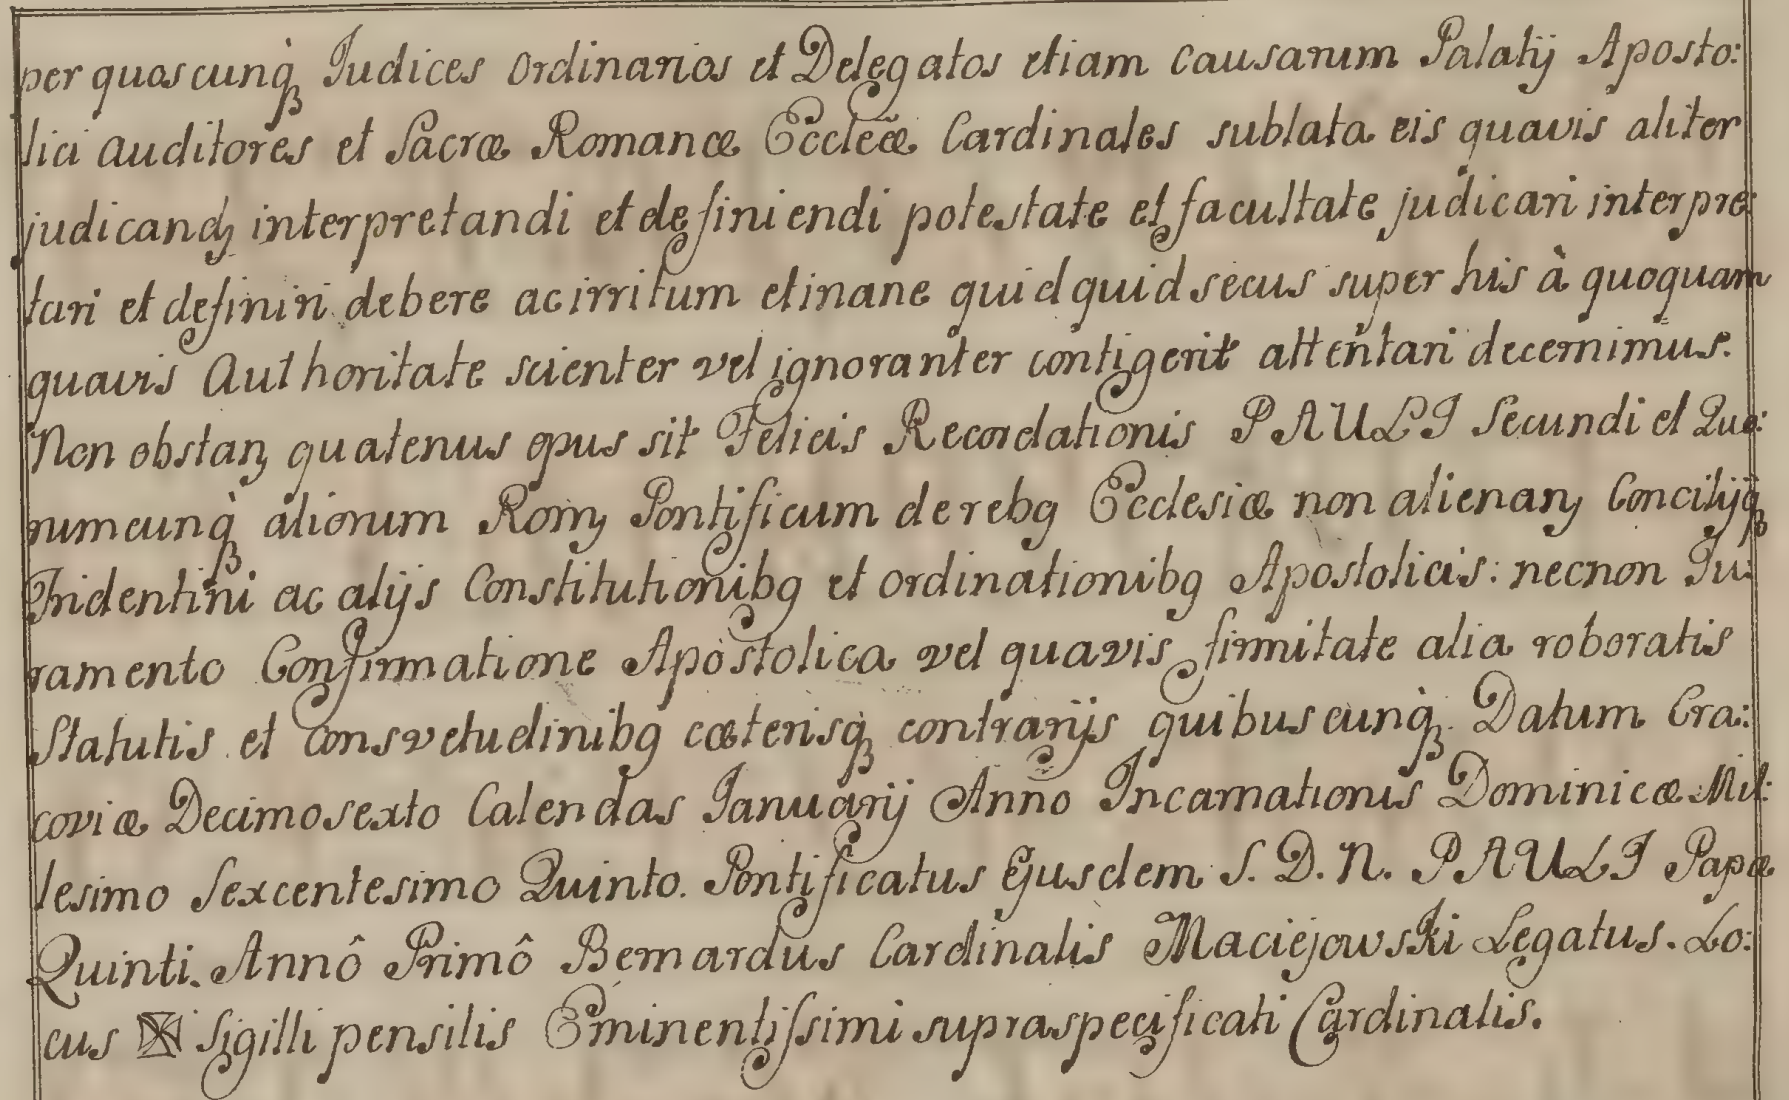 per quoscunq̀ꝫ Iudices Ordinarios et Delegatos etiam causarum Palatij Aposto:
lici Auditores et Sacræ Romanæ Eccleæ̃ Cardinales sublata eis quavis aliter
judicandꝫ interpretandi et definiendi potestate et facultate judicari interpre:
tari et definiri debere ac irritum et inane quidquid secus super his à quoquam
quavis Authoritate scienter vel ignoranter contigerit attentari decernimus.
Non obstanꝫ quatenus opus sit Felicis Recordationis PAULI Secundi et Quo:
rumcunq̀ꝫ aliorum Romꝫ Pontificum de rebꝯ Ecclesiæ non alienanꝫ Concilijq̀ꝫ
Tridentini ac alijs Constitutionibꝯ et Ordinationibꝯ Apostolicis: necnon Iu:
ramento Confirmatione Apostolica vel quavis firmitate alia roboratis
Statutis et consvetudinibꝯ cæterisq̀ꝫ contrarijs quibuscunq̀ꝫ. Datum Cra:
coviæ Decimosexto Calendas Ianuarij Anno Incarnationis Dominicæ Mil:
lesimo Sexcentesimo Quinto. Pontificatus Ejusdem S. D. N. PAULI Papæ
Quinti. Annô Primô Bernardus Cardinalis Maciejowski Legatus. Lo:
cus Sigilli pensilis Eminentissimi supraspecificati Cardinalis.